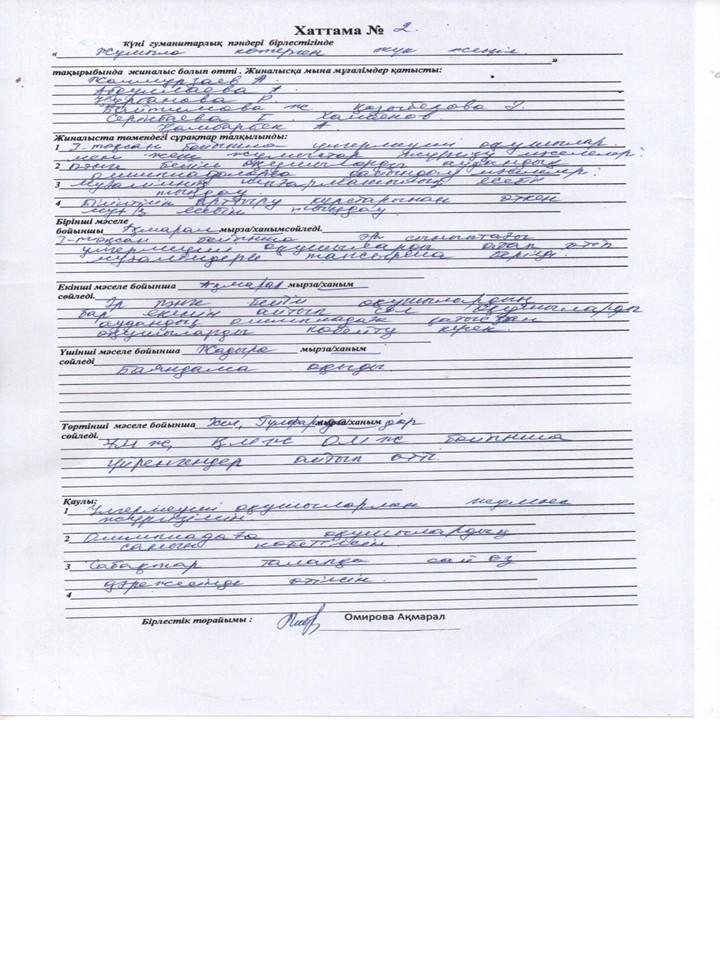 Хаттама № 2.
күні гуманитарлық пәндері бірлестігінде
« Жұмыла көтерген жүк жеңіл. »
тақырыбында жиналыс болып өтті . Жиналысқа мына мұғалімдер қатысты:
А.
Абдуллаева А
Құрбанова Р.
Ж
Сержбаева Г
Қамбарбек А.
Жиналыста төмендегі сұрақтар талқыланды:
1 3-тоқсан бойынша үлгермеуші оқушылар
мен жеке жұмыстар жүргізу мәселелері.
2 Пәнге бейім оқушыларды аудандық
олимпиадаларға дайындау
3 Мұғалімнің шығармашылық есебін
тыңдау
4 Білімін арттыру курстарынан өткен
есебін тыңдау
Бірінші мәселе
бойынша Ақмарал мырза/ханымсөйледі.
3-тоқсан бойынша әр сыныптағы
үлгермеуші оқушыларды атап өтті
мұғалімдерге берілді.
Екінші мәселе бойынша Ақмарал мырза/ханым
сөйледі. Әр пәнге бейім оқушылардың
бар екенін айтып сол оқушыларды
аудандық олимпиадаға қатысқан
оқушыларды көбейту керек.
Үшінші мәселе бойынша Жадыра мырза/ханым
сөйледі
Баяндама оқыды.
Төртінші мәселе бойынша мырза/ханым
сөйледі.
ОМЖ бойынша
үйренгендер айтып өтті.
Қаулы:
1 Үлгермеуші оқушылармен жұмыс
жүргізілсін.
2 Олимпиадаға оқушылардың
санын көбейтілсін.
3 Сабақтар талапқа сай өз
дәрежесінде өтілсін.
4
Бірлестік төрайымы : Омирова Ақмарал